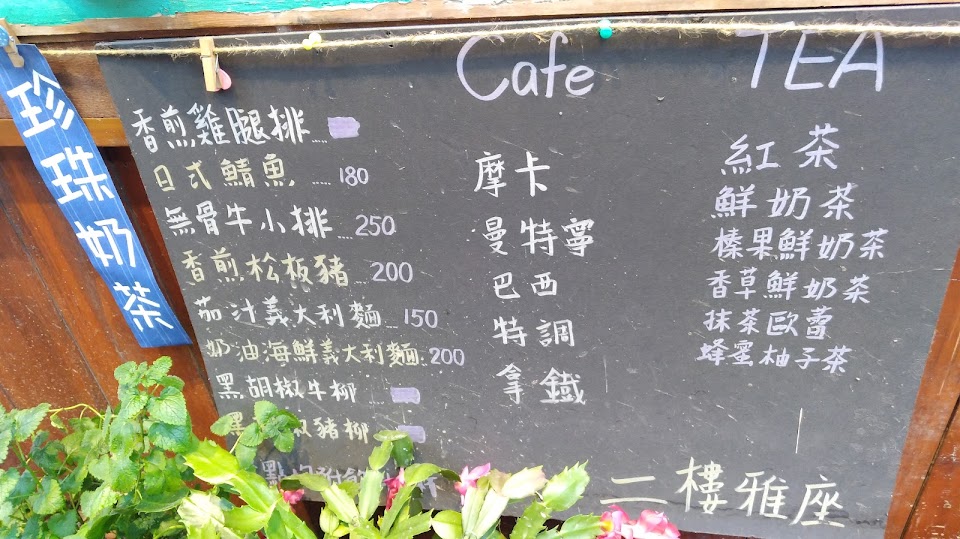 珍珠奶茶
香煎雞腿排.....
日式鯖魚.....180
無骨牛小排...250
香煎松板豬...200
茄汁義大利麵...150
奶油海鮮義大利麵.200
黑胡椒牛柳...
黑 椒豬柳...
Cafe
摩卡
曼特寧
巴西
特調
拿鐵
TEA
紅茶
鮮奶茶
榛果鮮奶茶
香草鮮奶茶
抹茶歐蕾
蜂蜜柚子茶
二樓雅座